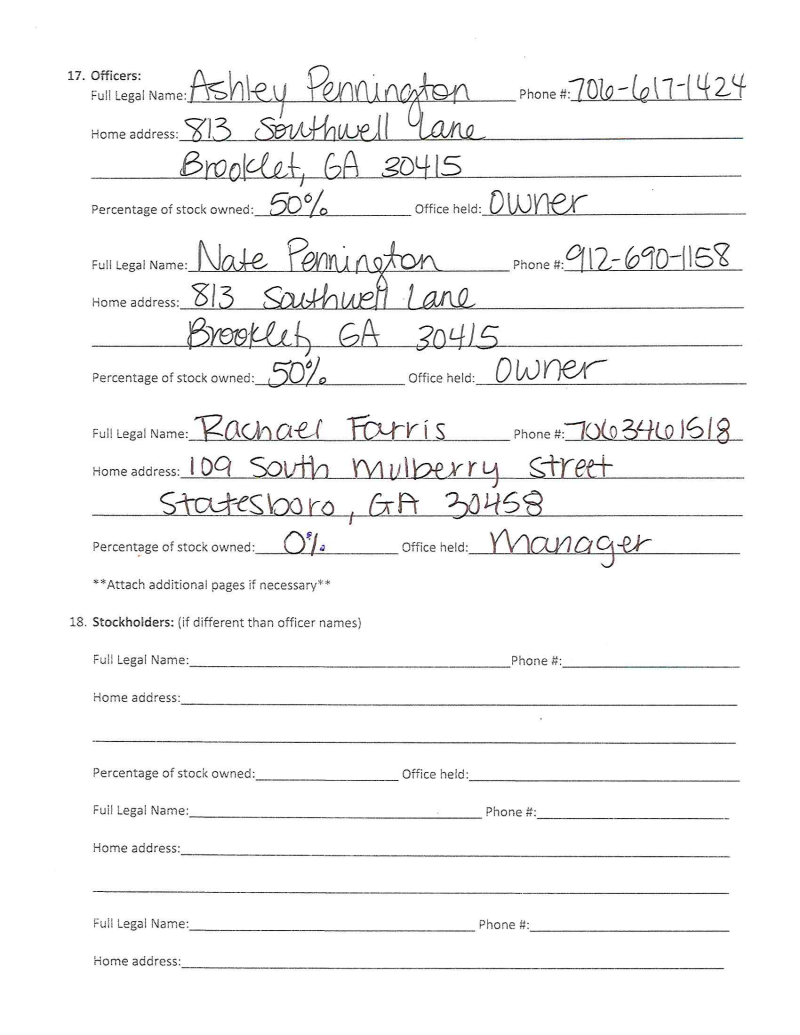 17. Officers:
Full Legal Name: Ashley Pennington Phone #: 706-617-1424
Home address: 813 Southwell Lane
Brooklet, GA 30415
Percentage of stock owned: 50% Office held: Owner
Full Legal Name: Nate Pennington Phone #: 912-690-1158
Home address: 813 Southwell Lane
Brooklet, GA 30415
Percentage of stock owned: 50% Office held: Owner
Full Legal Name: Rachael Farris Phone #: 7063461518
Home address: 109 South Mulberry Street
Statesboro, GA 30458
Percentage of stock owned: 0% Office held: Manager
**Attach additional pages if necessary**
18. Stockholders: (if different than officer names)
Full Legal Name: Phone #:
Home address:
Percentage of stock owned: Office held:
Full Legal Name: Phone #:
Home address:
Full Legal Name: Phone #:
Home address: